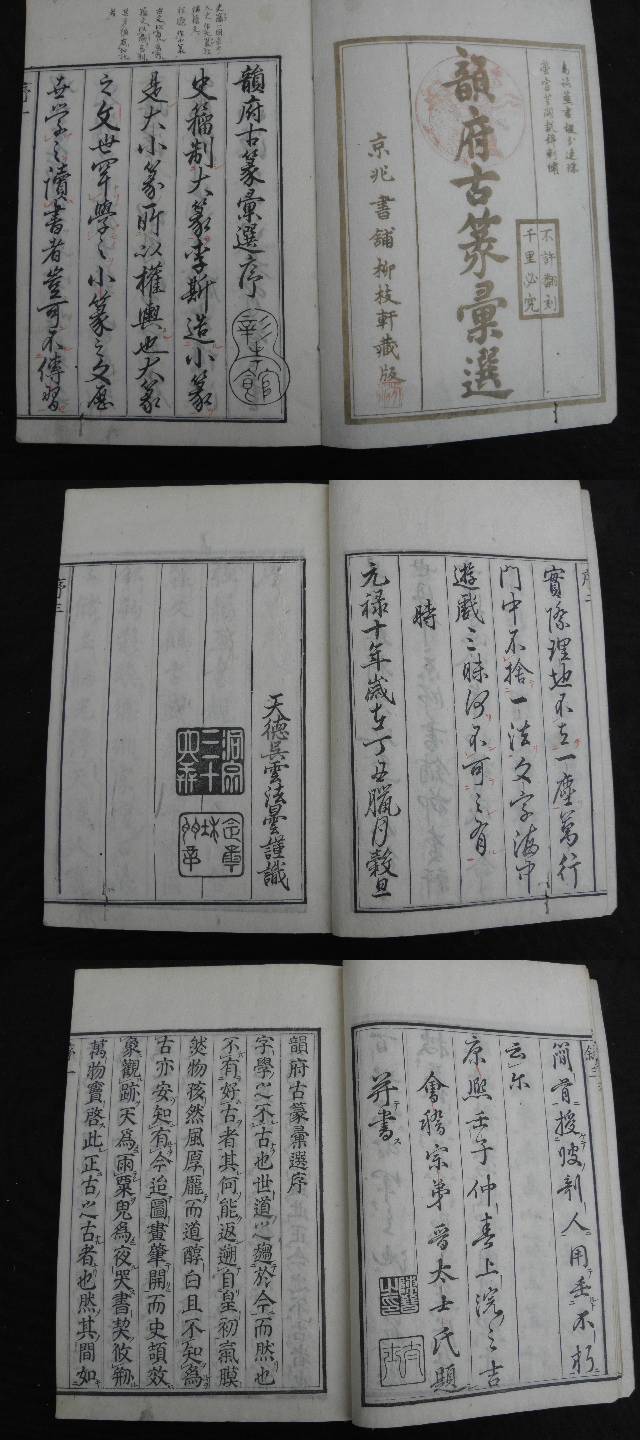 韻府古篆彙選
不許翻刻
千里必究
京兆書舖柳枝軒藏版
韻府古篆彙選序
史籀制大篆李斯造小篆
是大小篆所以權輿也大篆
之文世罕學之小篆之文
世學之讀書者豈可不傳習
序一
彰考館
序二
實際理地不立一塵萬行
門中不捨一法文字海中
遊戲三昧何不可之有
時
元禄十年歲在丁丑臘月穀旦
天德吳雲法曇謹識
序三
簡首授剞人用垂不朽
云尔
康熙壬子仲春上浣之吉
會稽宗弟晉太士氏題
并書
韻府古篆彙選序
字學之不古也世道之趨於今而然也
不有好古者其何能返遡自皇初氣膜
然物孩然風厚龐而道醇白且不知為
古亦安知有今迨圖畫肇開而史頡效
象觀跡天為雨粟鬼為夜哭書契攸剏
萬物寶啓此正古之古者也然其間如
序一